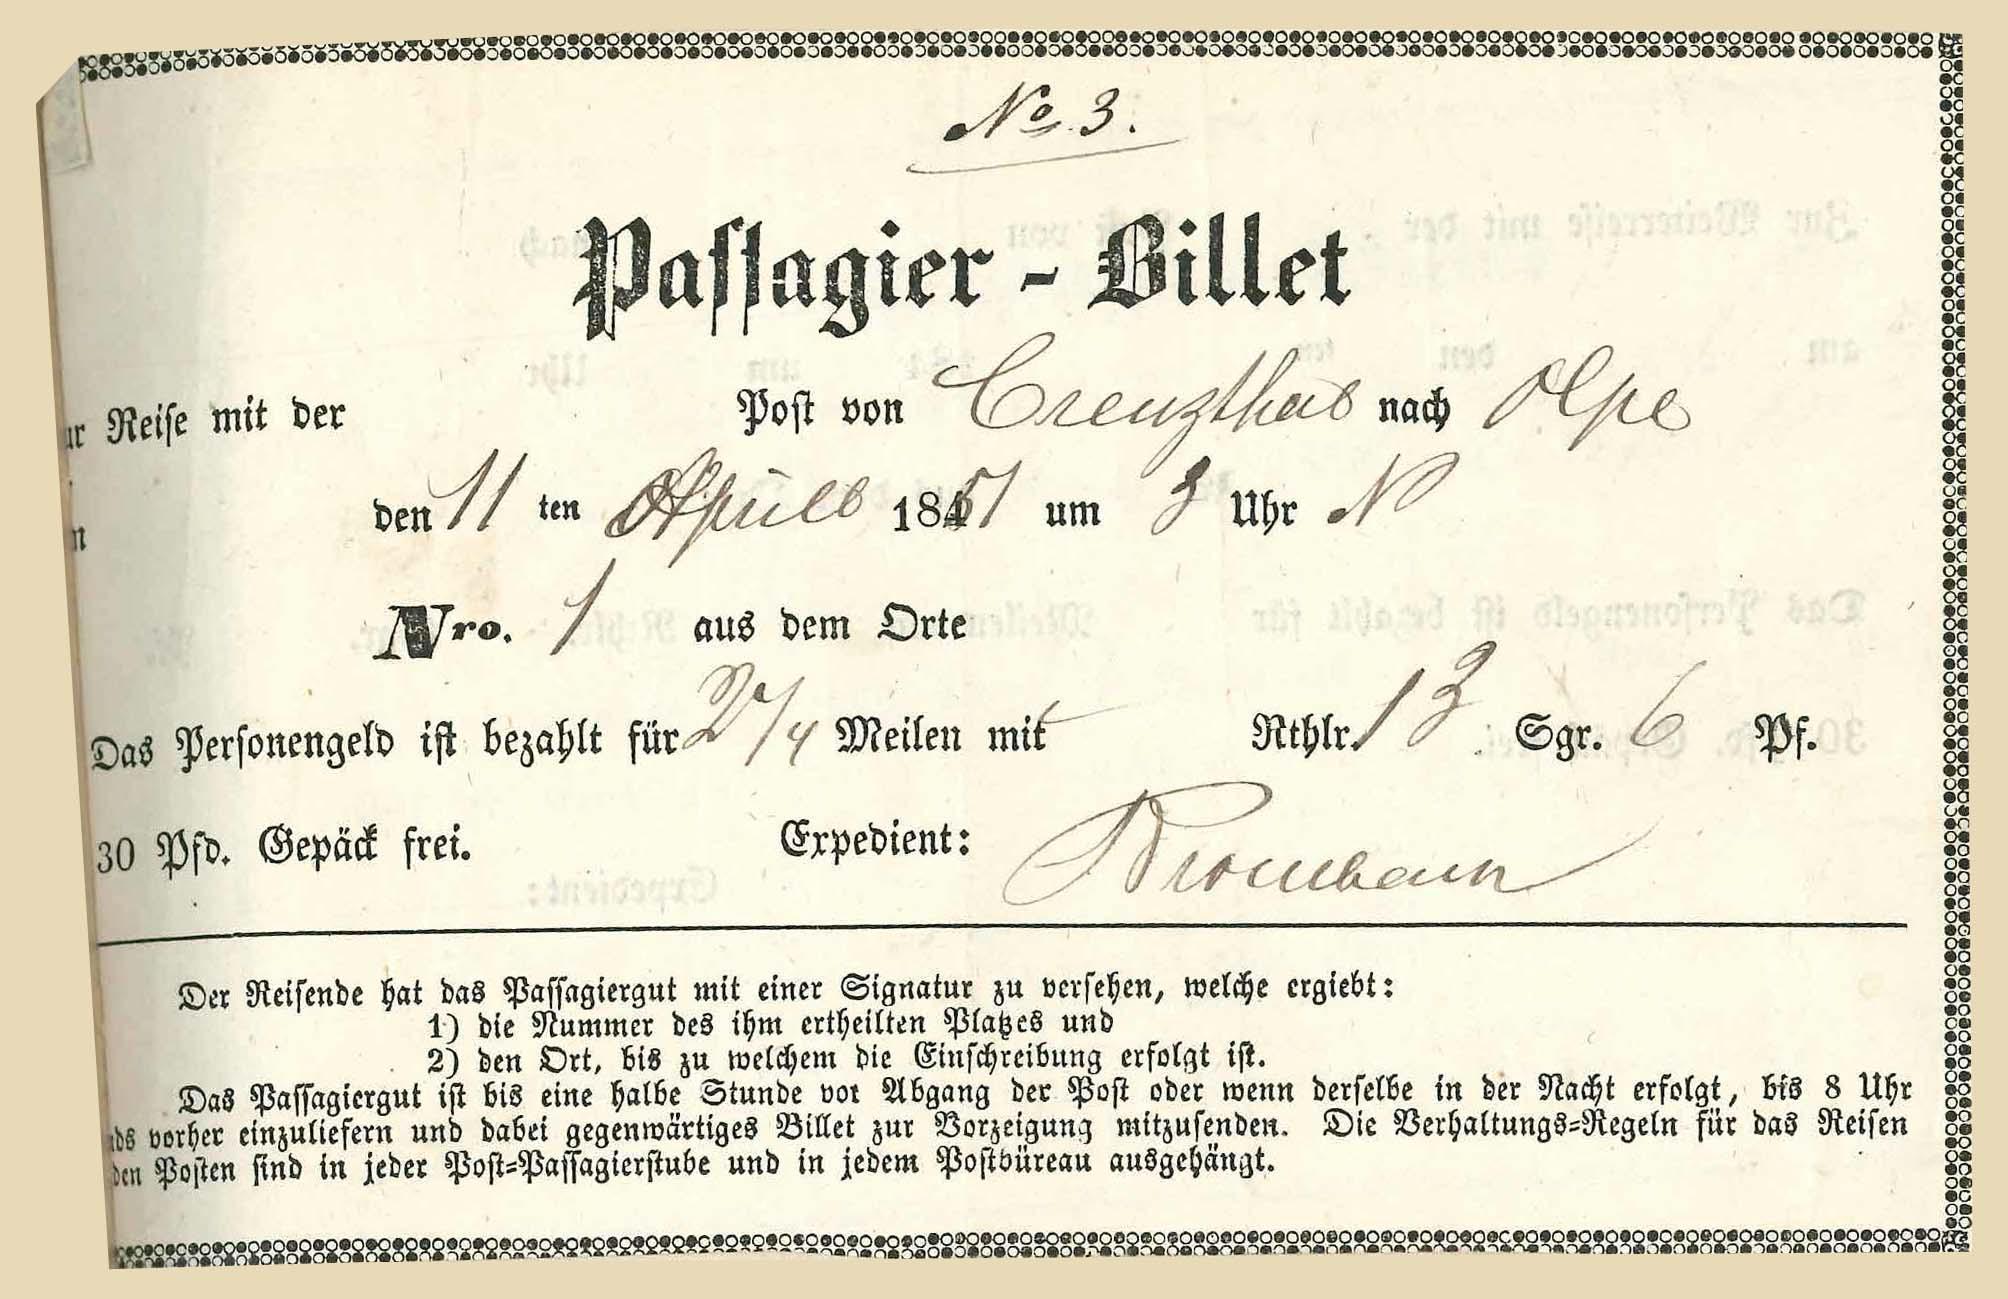 No 3.
Passagier - Billet
ur Reise mit der Post von Creuzthal nach Olpe
den 11 ten April 1851 um 3 Uhr N
Nro. 1 aus dem Orte
Das Personengeld ist bezahlt für 2 1/4 Meilen mit Rthlr. 13 Sgr. 6 Pf.
30 Pfd. Gepäck frei. Expedient:
Der Reisende hat das Passagiergut mit einer Signatur zu versehen, welche ergiebt:
1) die Nummer des ihm ertheilten Platzes und
2) den Ort, bis zu welchem die Einschreibung erfolgt ist.
Das Passagiergut ist bis eine halbe Stunde vor Abgang der Post oder wenn derselbe in der Nacht erfolgt, bis 8 Uhr
nds vorher einzuliefern und dabei gegenwärtiges Billet zur Vorzeigung mitzusenden. Die Verhaltungs-Regeln für das Reisen
den Posten sind in jeder Post-Passagierstube und in jedem Postbüreau ausgehängt.